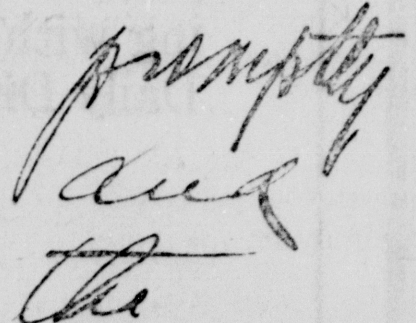 promptly
and
the